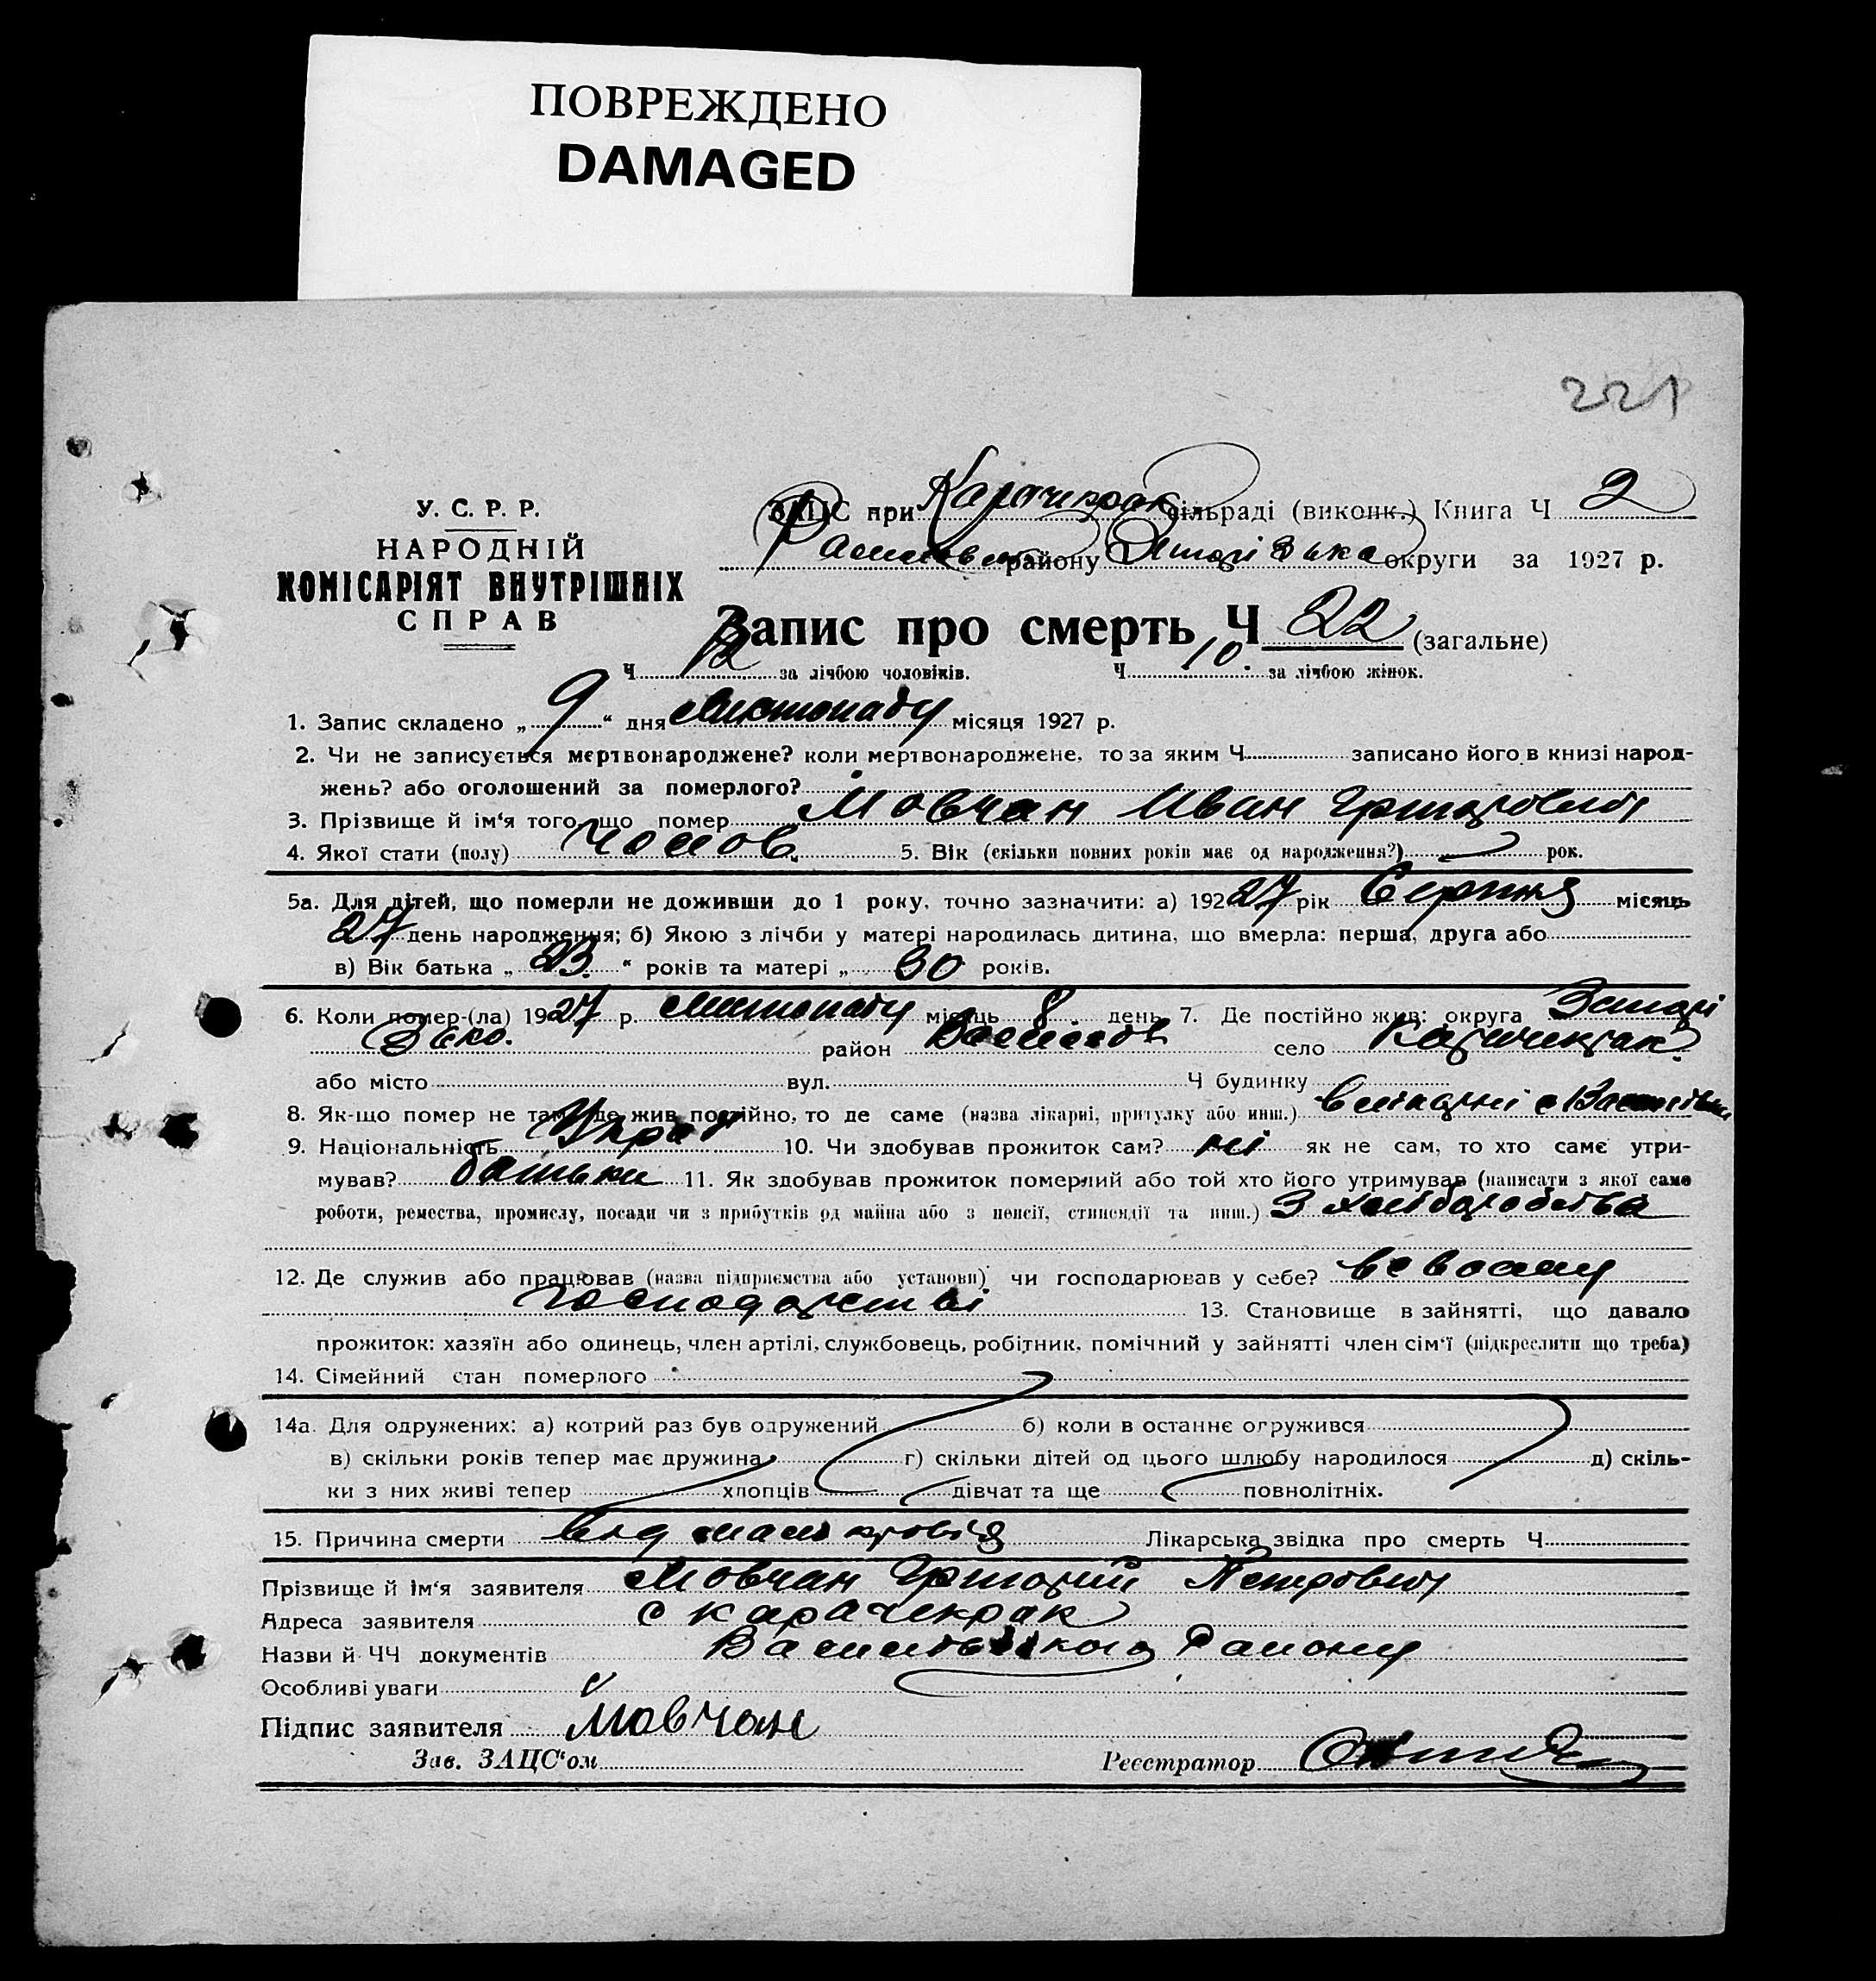 ПОВРЕЖДЕНО
DAMAGED
221
У. С. Р. Р.
НАРОДНІЙ
КОМІСАРІЯТ ВНУТРІШНІХ
СПРАВ
ЗАЦС при Карачекрак сільраді (виконк.) Книга Ч 2
району округи за 1927 р.
Запис про смерть Ч 22 (загальне)
Ч 12 за лічбою чоловіків. Ч 10. за лічбою жінок.
1. Запис складено „ 9 “ дня Листопаду місяця 1927 р.
2. Чи не записується мертвонароджене? коли мертвонароджене, то за яким Ч записано його в книзі народ-
жень? або оголошений за померлого?
3. Прізвище й ім‘я того, що помер Мовчан Иван Григорович
4. Якої стати (полу) Чолов. 5. Вік (скільки повних років має од народження?) рок.
5а. Для дітей, що померли не доживши до 1 року, точно зазначити: а) 192 27 рік Серпня місяць
27 день народження; б) Якою з лічби у матері народилась дитина, що вмерла: перша, друга або
в) Вік батька „ 23. “ років та матері „ 30 років.
6. Коли помер-(ла) 19 27 р. листопаду місяць 8 день 7. Де постійно жив: округа Запорі
зько. район Василів село Карачикрак
або місто вул. Ч будинку
8. Як-що помер не там, де жив постійно, то де саме (назва лікарні, притулку або инш.) в лікарні с
9. Національність Укра 10. Чи здобував прожиток сам? ні як не сам, то хто саме утри-
мував? батьки 11. Як здобував прожиток померлий або той хто його утримував (написати з якої саме
роботи, ремества, промислу, посади чи з прибутків од майна або з пенсії, стипендії та инш.) З хліборобства
12. Де служив або працював (назва підприємства або установи) чи господарював у себе? в своему
господарстві 13. Становище в зайнятті, що давало
прожиток: хазяїн або одинець, член артілі, службовець, робітник, помічний у зайнятті член сім‘ї (підкреслити що треба)
14. Сімейний стан померлого
14а. Для одружених: а) котрий раз був одружений б) коли в останнє огружився
в) скільки років тепер має дружина г) скільки дітей од цього шлюбу народилося д) скіль-
ки з них живі тепер хлопців дівчат та ще повнолітніх.
15. Причина смерти Від малокровія Лікарська звідка про смерть Ч
Прізвище й ім‘я заявителя Мовчан Григорий Петрович
Адреса заявителя с Карачекрак
Назви й ЧЧ документів Василівського Району
Особливі уваги
Підпис заявителя Мовчан
Зав. ЗАЦС‘ом Реєстратор